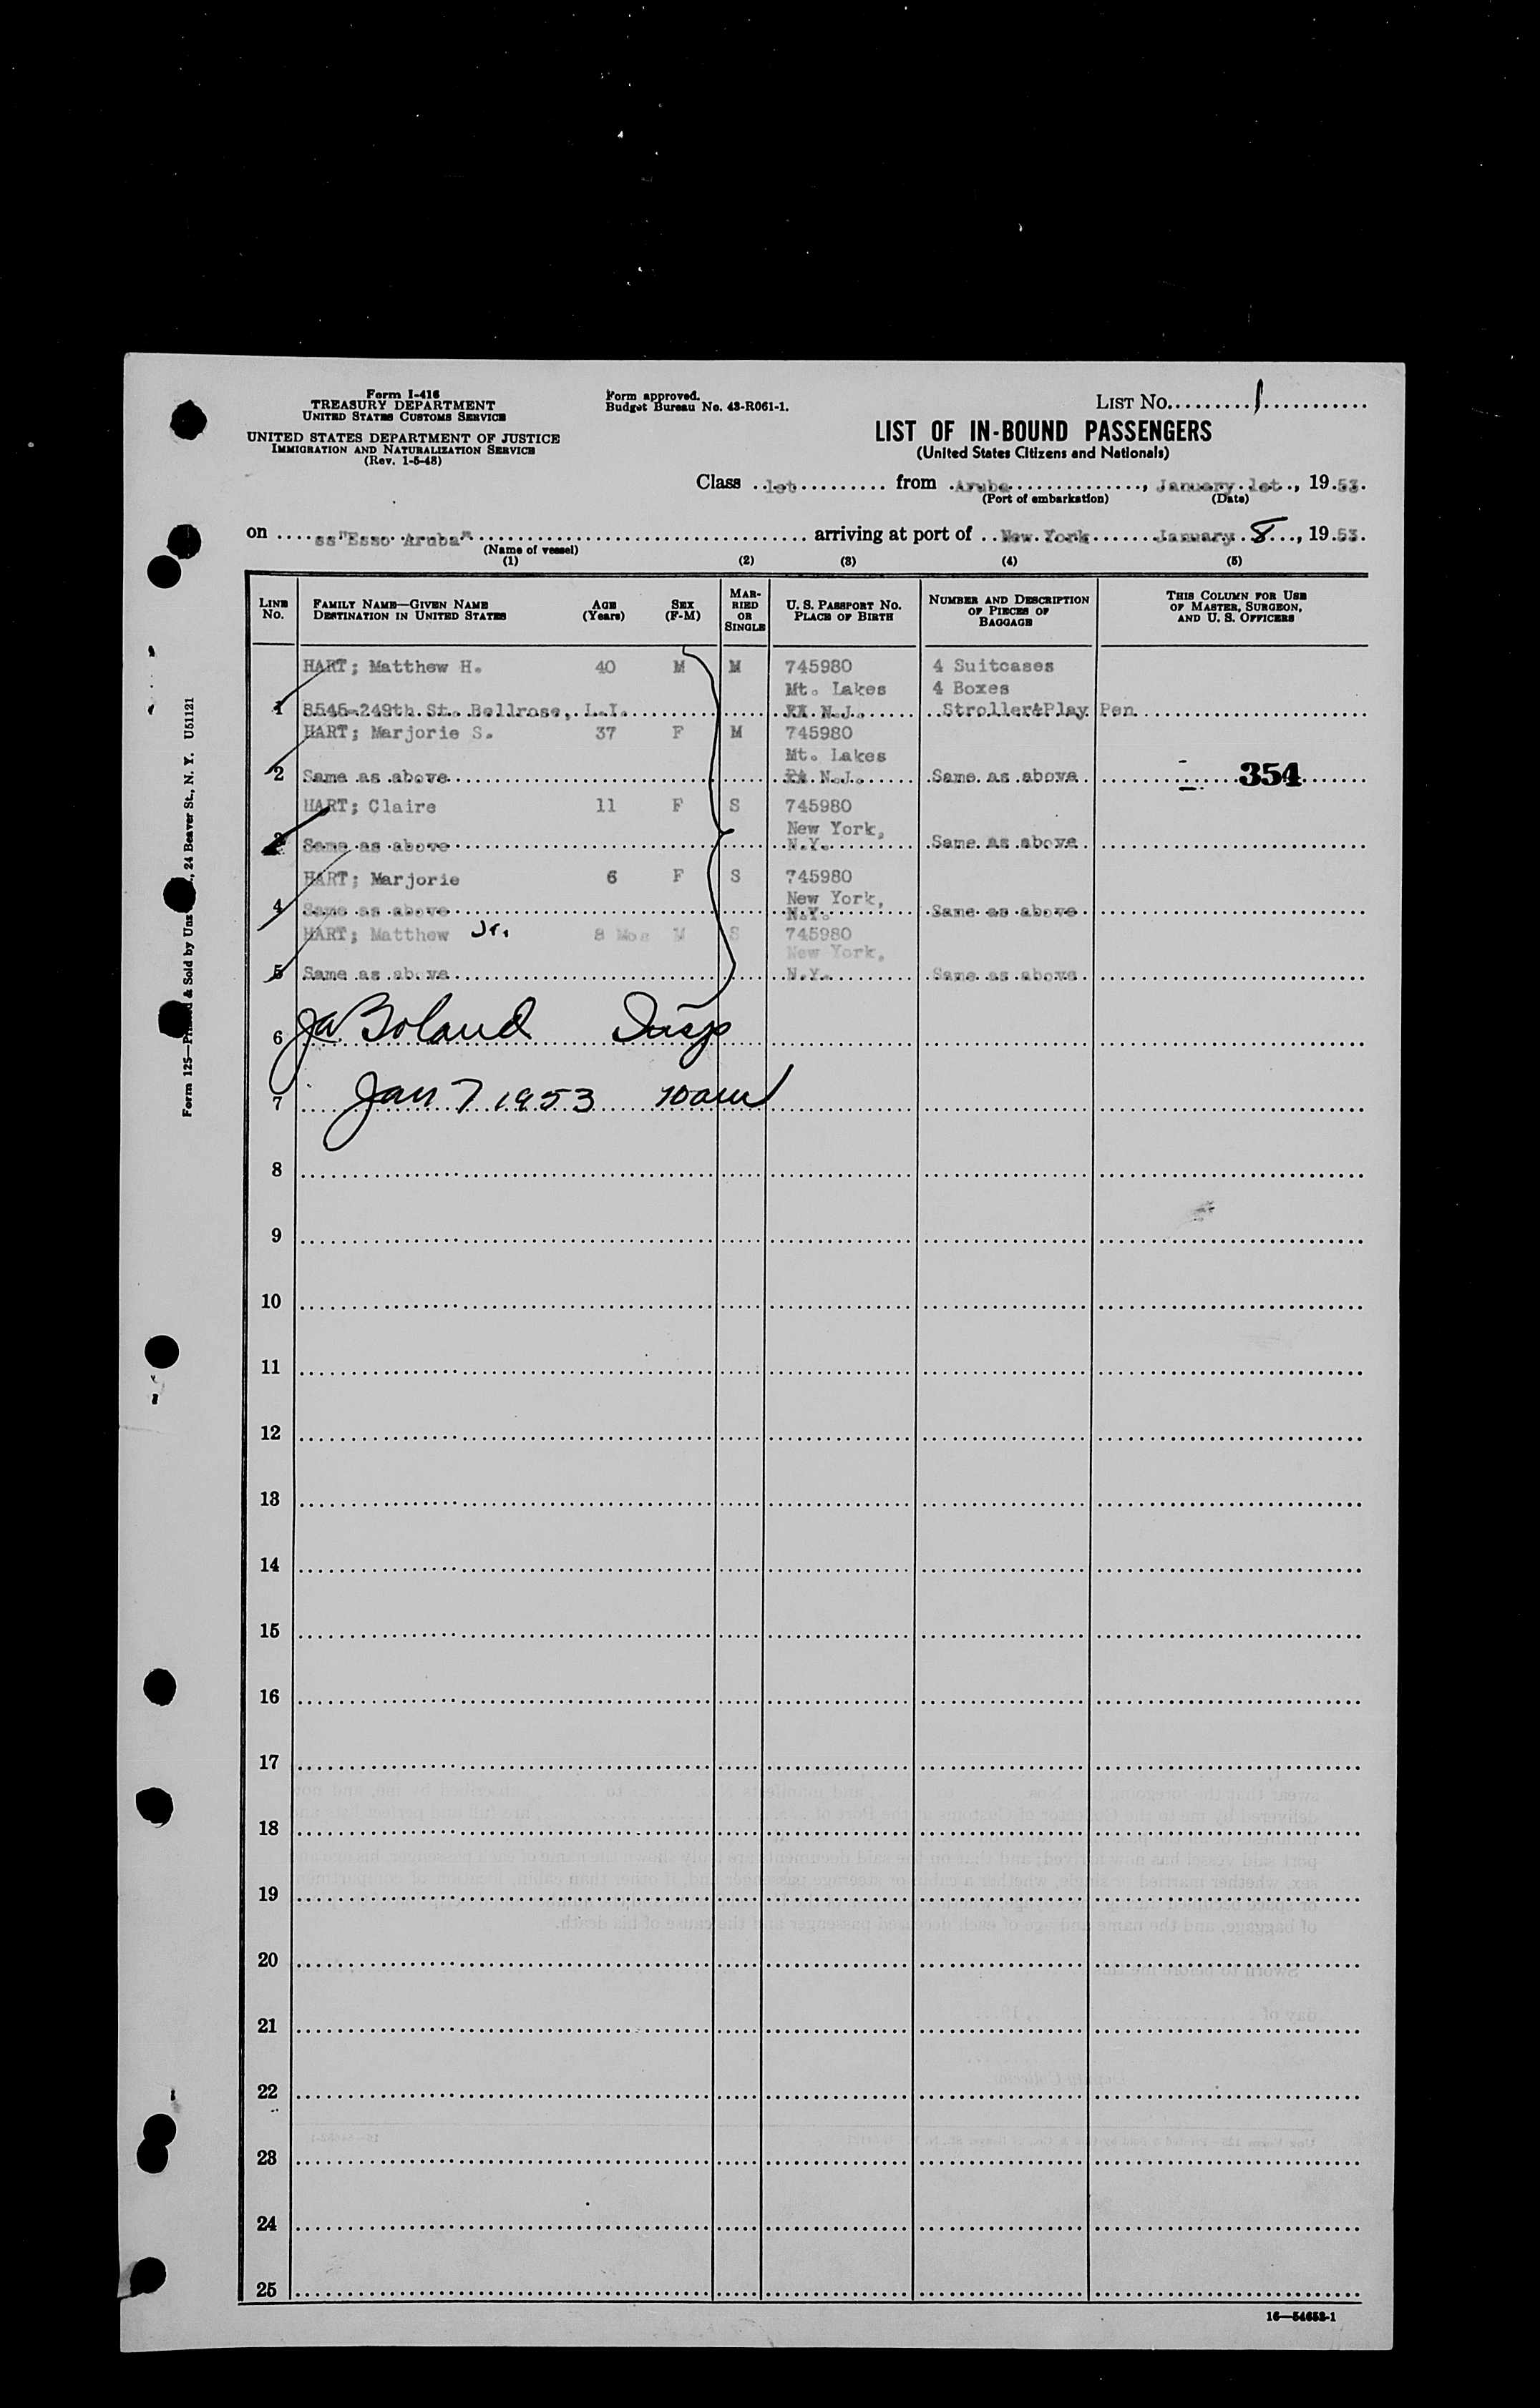 Form I-416
TREASURY DEPARTMENT
UNITED STATES CUSTOMS SERVICE
UNITED STATES DEPARTMENT OF JUSTICE
IMMIGRATION AND NATURALIZATION SERVICE
(Rev. 1-5-48)
Form approved.
Budget Bureau No. 43-R061-1.
LIST NO. 1
LIST OF IN-BOUND PASSENGERS
(United States Citizens and Nationals)
Class 1st from Aruba, January 1st, 1953.
(Port of embarkation) (Date)
on ss"Esso Aruba" arriving at port of New York January 8, 1953.
(Name of vessel)
(1) (2) (3) (4) (5)
LINE NO. FAMILY NAME—GIVEN NAME DESTINATION IN UNITED STATES AGE (Years) SEX (F-M) MARRIED OR SINGLE U. S. PASSPORT NO. PLACE OF BIRTH NUMBER AND DESCRIPTION OF PIECES OF BAGGAGE THIS COLUMN FOR USE OF MASTER, SURGEON, AND U. S. OFFICERS
HART; Matthew H. 40 M M 745980 4 Suitcases
Mt. Lakes 4 Boxes
1 8545-249th St. Bellrose, L.I. N.J. Stroller&Play Pen
HART; Marjorie S. 37 F M 745980
Mt. Lakes
2 Same as above N.J. Same as above 354
HART; Claire 11 F S 745980
New York,
3 Same as above N.Y. Same as above
HART; Marjorie 6 F S 745980
New York,
4 Same as above N.Y. Same as above
HART; Matthew Jr. 8 Mos M S 745980
New York,
5 Same as above N.Y. Same as above
6 Ja Boland Insp
7 Jan 7 1953 10am
8
9
10
11
12
13
14
15
16
17
18
19
20
21
22
23
24
25
16—54652-1
Form 125—Printed & Sold by Unz , 24 Beaver St., N. Y. U51121